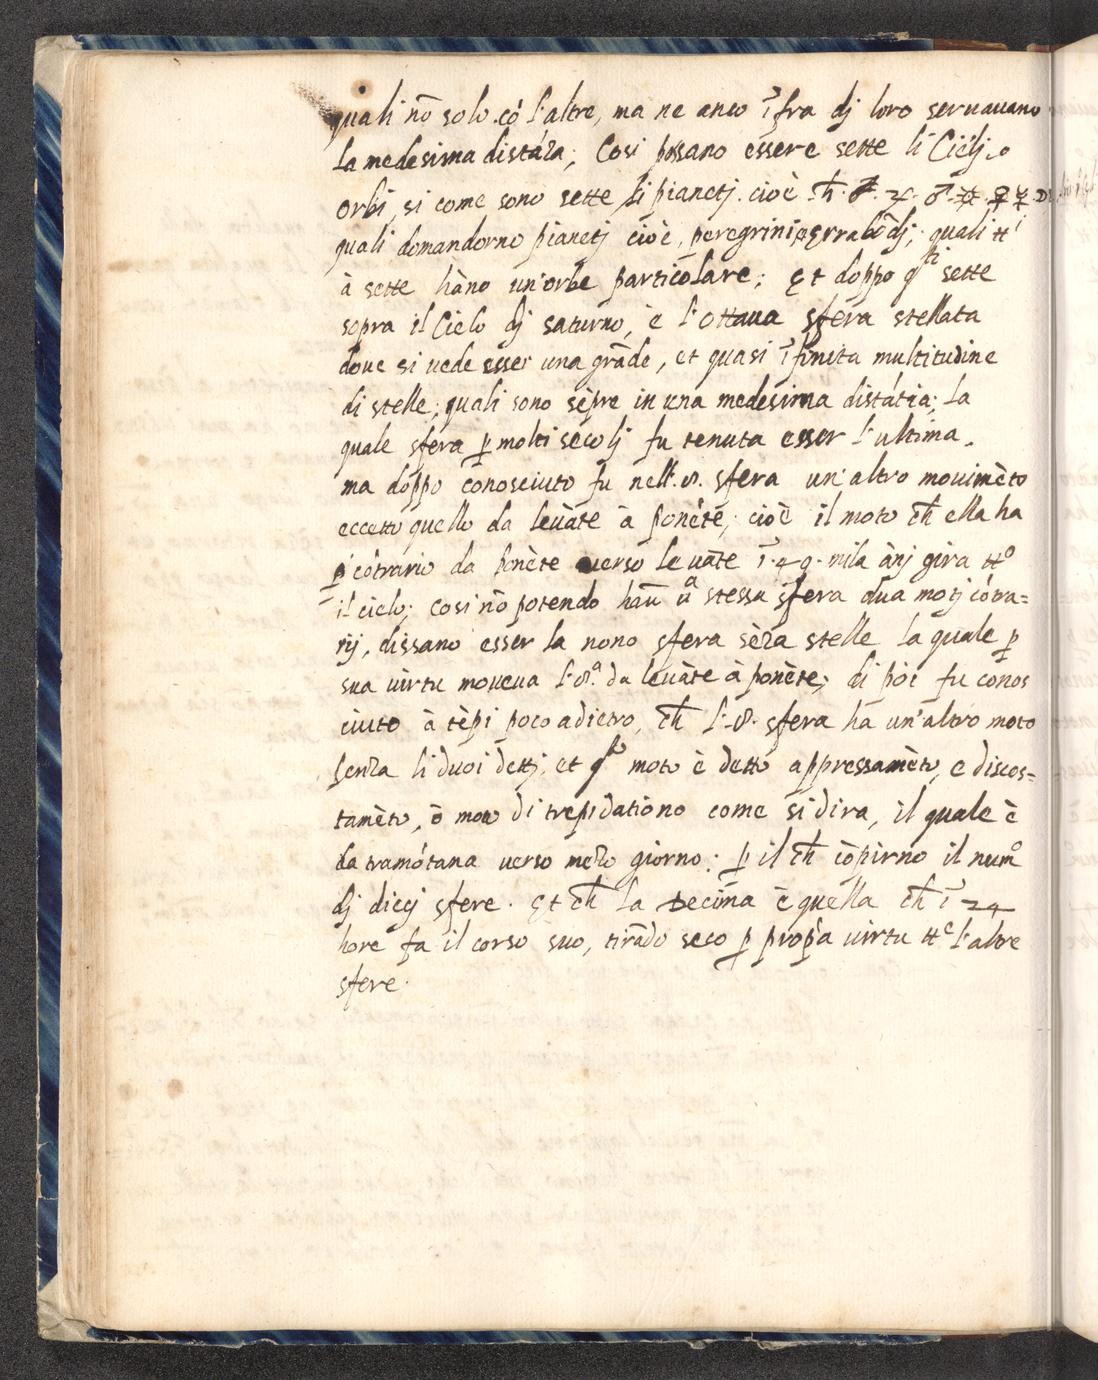 quali nō solo cō l'altre, ma ne anco ī fra dj loro seruauano
la medesima distāza; Cosi possano essere sette li Cieli, o
orbi, si come sono sette li pianetj cioè ♄. ♃. ♂. ☼. ♀ ☿
quali domandorno pianetj cioè, peregrini, errabōdj; quali tti
à sette hāno un'orbe particolare; Et doppo qsti sette
sopra il Cielo dj saturno, è l'ottaua sfera stellata
doue si uede esser una grāde, et quasi īfinita multitudine
di stelle; quali sono sēpre in una medesima distātia; la
quale sfera ꝑ molti secolj fu tenuta esser l'ultima.
ma doppo conosciuto fu nell'.8. sfera un'altro mouimēto
eccetto quello da leuāte à ponēte; cioè il moto ch̄ ella ha
ꝑ cōtrario da ponēte uerso leuāte ī .49. mila ānj gira tto
il cielo; cosi nō potendo hau ūa stessa sfera dua motj cōtra=
rij, dissano esser la nono sfera sēza stelle la quale ꝑ
sua uirtu moueua l'.8a. da leuāte à ponēte; di poi fu conos
ciuto à tēpi poco adietro, ch̄ l'.8. sfera ha un'altro moto
senza li duoi dettj. et qsto moto è detto appressamēto, e discos=
tamēto, ò moto di trepidationo come si dira, il quale è
da tramōtana uerso mezo giorno: ꝑ il ch̄ cōpirno il numo
dj diecj sfere. Et ch̄ la decima è quella ch̄ ī 24
hore fa il corso suo, tirādo seco ꝑ propa uirtu tte l'altre
sfere.